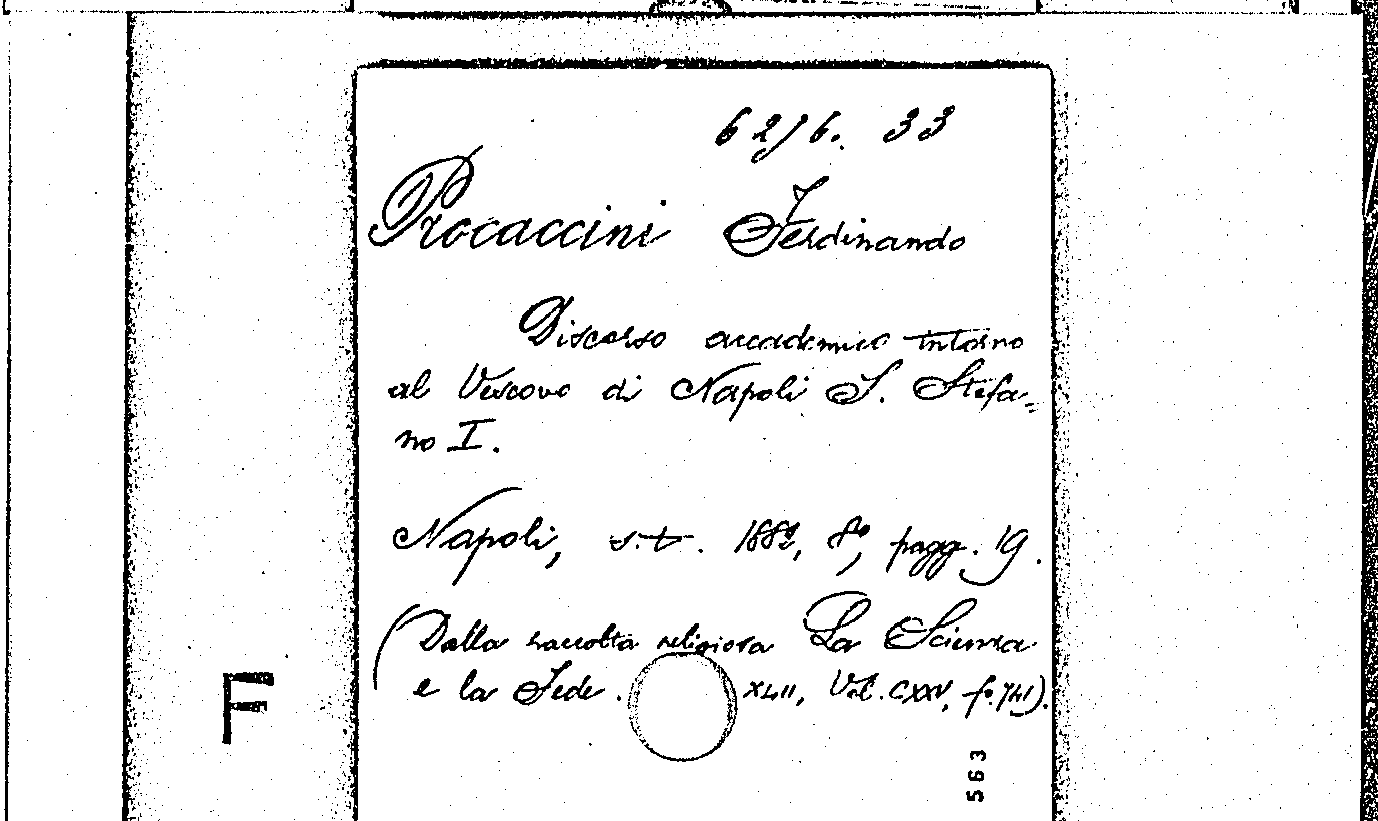 62/6. 33
Procaccini Ferdinando
Discorso accademico intorno
al Vescovo di Napoli S. Stefa=
no I.
Napoli, s.t. 1882, 8º, pagg. 19.
(Dalla raccolta religiosa La Scienza
e la Fede. XLII, Vol. CXXV, fº.
F
563